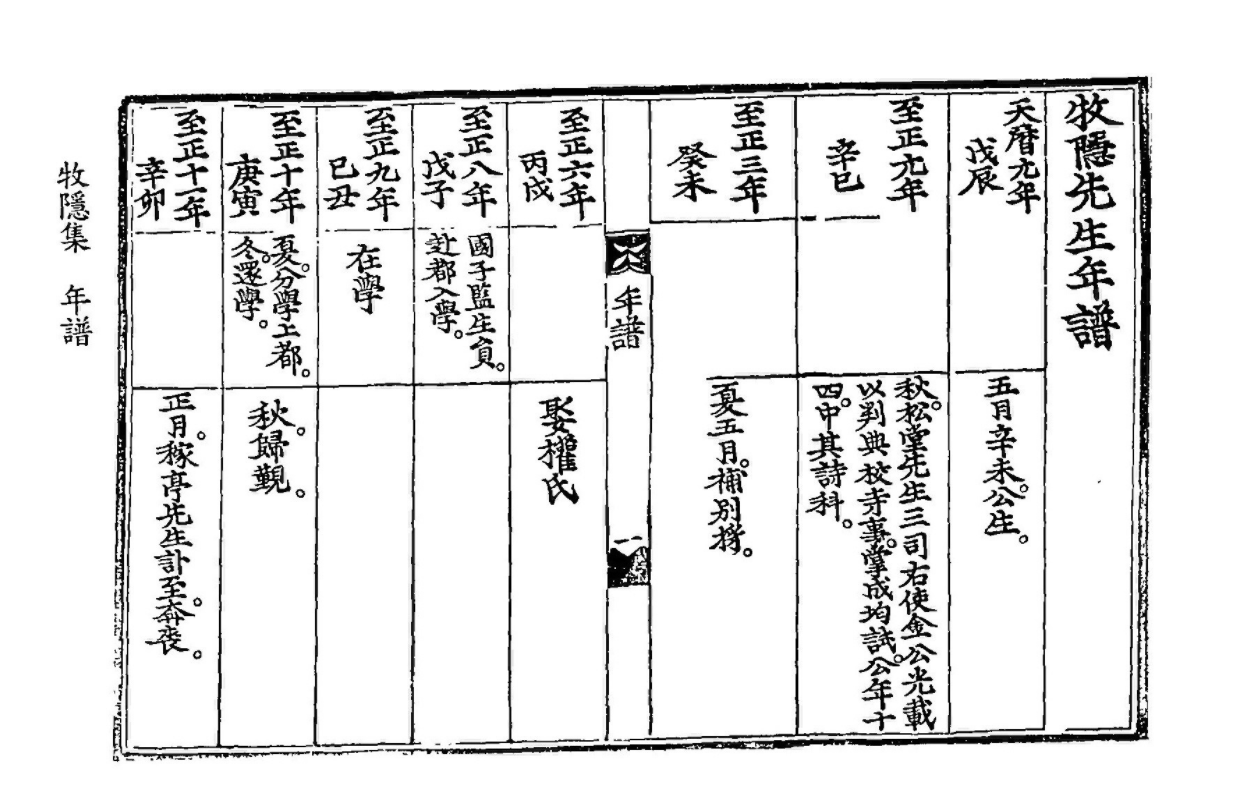 牧隱先生年譜
天曆元年
戊辰
五月辛未。公生。
至正元年
辛巳
秋。松堂先生三司右使金公光載
以判典校寺事。掌成均試。公年十
四。中其詩科。
至正三年
癸未
夏五月。補別將。
年譜
一
至正六年
丙戌
娶權氏
至正八年
戊子
國子監生員。
赴都入學。
至正九年
己丑
在學
至正十年
庚寅
夏。分學上都。
冬。還學。
秋。歸覲。
至正十一年
辛卯
正月。稼亭先生訃至。奔喪。
牧隱集 年譜